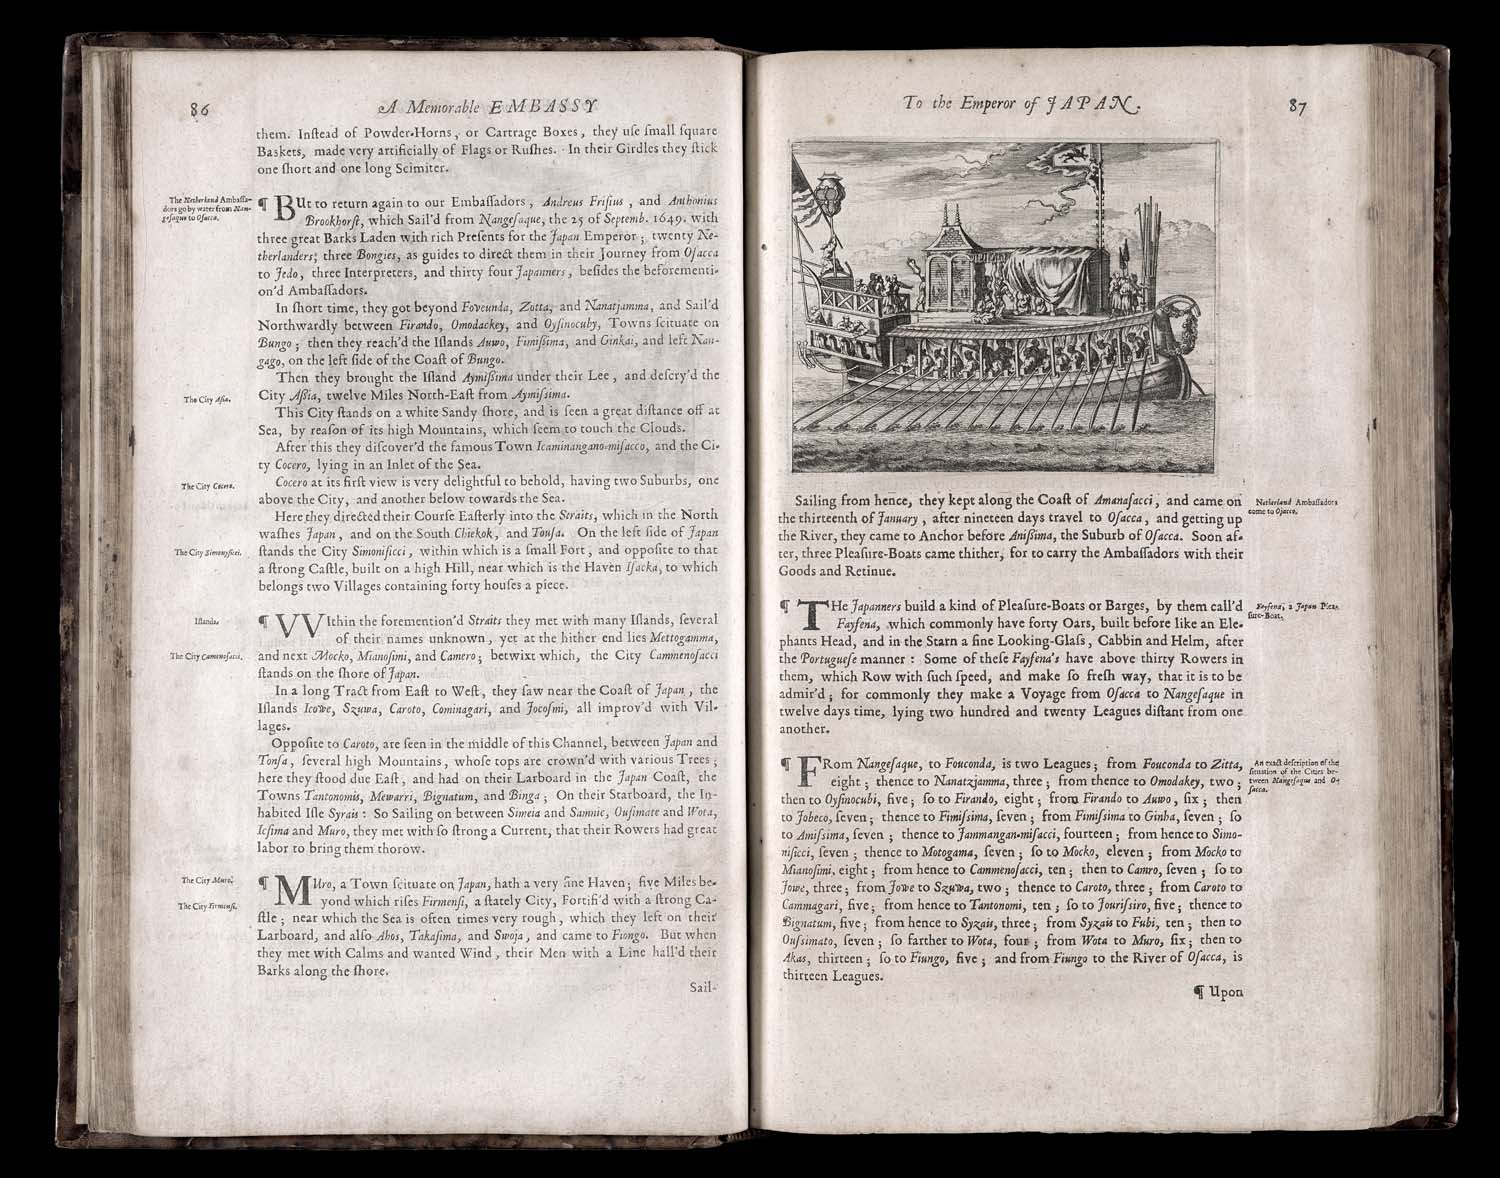 86
A Memorable EMBASSY
them. Inſtead of Powder-Horns, or Cartrage Boxes, they uſe ſmall ſquare
Baskets, made very artificially of Flags or Ruſhes. In their Girdles they ſtick
one ſhort and one long Scimiter.
The Netherland Ambaſſa-
dors go by water from Nan-
geſaque to Oſacca.
¶ BUt to return again to our Embaſſadors, Andreus Friſius, and Anthonius
Brookhorſt, which Sail'd from Nangeſaque, the 25 of Septemb. 1649. with
three great Barks Laden with rich Preſents for the Japan Emperor; twenty Ne-
therlanders; three Bongies, as guides to direct them in their Journey from Oſacca
to Jedo, three Interpreters, and thirty four Japanners, beſides the beforementi-
on'd Ambaſſadors.
In ſhort time, they got beyond Foveunda, Zotta, and Nanatjamma, and Sail'd
Northwardly between Firando, Omodackey, and Oyſinocuby, Towns ſcituate on
Bungo; then they reach'd the Iſlands Auwo, Fimiſsima, and Ginkai, and left Nan-
gago, on the left ſide of the Coaſt of Bungo.
Then they brought the Iſland Aymiſsima under their Lee, and deſcry'd the
The City Aſia.
City Aſsia, twelve Miles North-Eaſt from Aymiſsima.
This City ſtands on a white Sandy ſhore, and is ſeen a great diſtance off at
Sea, by reaſon of its high Mountains, which ſeem to touch the Clouds.
After this they diſcover'd the famous Town Icaminangano-miſacco, and the Ci-
ty Cocero, lying in an Inlet of the Sea.
The City Cocero.
Cocero at its firſt view is very delightful to behold, having two Suburbs, one
above the City, and another below towards the Sea.
Here they directed their Courſe Eaſterly into the Straits, which in the North
waſhes Japan, and on the South Chiekok, and Tonſa. On the left ſide of Japan
The City Simonyſicci.
ſtands the City Simoniſicci, within which is a ſmall Fort, and oppoſite to that
a ſtrong Caſtle, built on a high Hill, near which is the Haven Iſacka, to which
belongs two Villages containing forty houſes a piece.
Iſlands.
¶ VVIthin the foremention'd Straits they met with many Iſlands, ſeveral
of their names unknown, yet at the hither end lies Mettogamma,
The City Camenoſacci.
and next Mocko, Mianoſimi, and Camero; betwixt which, the City Cammenoſacci
ſtands on the ſhore of Japan.
In a long Tract from Eaſt to Weſt, they ſaw near the Coaſt of Japan, the
Iſlands Icowe, Szuwa, Caroto, Cominagari, and Jocoſmi, all improv'd with Vil-
lages.
Oppoſite to Caroto, are ſeen in the middle of this Channel, between Japan and
Tonſa, ſeveral high Mountains, whoſe tops are crown'd with various Trees;
here they ſtood due Eaſt, and had on their Larboard in the Japan Coaſt, the
Towns Tantonomis, Mewarri, Bignatum, and Binga; On their Starboard, the In-
habited Iſle Syrais: So Sailing on between Simeia and Samnic, Ouſimate and Wota,
Icſima and Muro, they met with ſo ſtrong a Current, that their Rowers had great
labor to bring them thorow.
The City Muro.
¶ MUro, a Town ſcituate on Japan, hath a very fine Haven; five Miles be-
The City Firmenſi.
yond which riſes Firmenſi, a ſtately City, Fortifi'd with a ſtrong Ca-
ſtle; near which the Sea is often times very rough, which they left on their
Larboard, and alſo Ahos, Takaſima, and Swoja, and came to Fiongo. But when
they met with Calms and wanted Wind, their Men with a Line hall'd their
Barks along the ſhore.
Sail-
To the Emperor of JAPAN.
87
Sailing from hence, they kept along the Coaſt of Amanaſacci, and came on
Netherland Ambaſſadors
come to Oſacca.
the thirteenth of January, after nineteen days travel to Oſacca, and getting up
the River, they came to Anchor before Aniſsima, the Suburb of Oſacca. Soon af-
ter, three Pleaſure-Boats came thither, for to carry the Ambaſſadors with their
Goods and Retinue.
¶ THe Japanners build a kind of Pleaſure-Boats or Barges, by them call'd
Fayſena, a Japan Plea-
ſure-Boat.
Fayſena, which commonly have forty Oars, built before like an Ele-
phants Head, and in the Starn a fine Looking-Glaſs, Cabbin and Helm, after
the Portugueſe manner: Some of theſe Fayſena's have above thirty Rowers in
them, which Row with ſuch ſpeed, and make ſo freſh way, that it is to be
admir'd; for commonly they make a Voyage from Oſacca to Nangeſaque in
twelve days time, lying two hundred and twenty Leagues diſtant from one
another.
¶ FRom Nangeſaque, to Fouconda, is two Leagues; from Fouconda to Zitta,
An exact deſcription of the
ſituation of the Cities be-
tween Nangeſaque and O-
ſacca.
eight; thence to Nanatzjamma, three; from thence to Omodakey, two;
then to Oyſinocubi, five; ſo to Firando, eight; from Firando to Auwo, ſix; then
to Jobeco, ſeven; thence to Fimiſsima, ſeven; from Fimiſsima to Ginha, ſeven; ſo
to Amiſsima, ſeven; thence to Jammangan-miſacci, fourteen; from hence to Simo-
niſicci, ſeven; thence to Motogama, ſeven; ſo to Mocko, eleven; from Mocko to
Mianoſimi, eight; from hence to Cammenoſacci, ten; then to Camro, ſeven; ſo to
Jowe, three; from Jowe to Szuwa, two; thence to Caroto, three; from Caroto to
Cammagari, five; from hence to Tantonomi, ten; ſo to Jouriſsiro, five; thence to
Bignatum, five; from hence to Syzais, three; from Syzais to Fubi, ten; then to
Ouſsimato, ſeven; ſo farther to Wota, four; from Wota to Muro, ſix; then to
Akas, thirteen; ſo to Fiungo, five; and from Fiungo to the River of Oſacca, is
thirteen Leagues.
¶ Upon